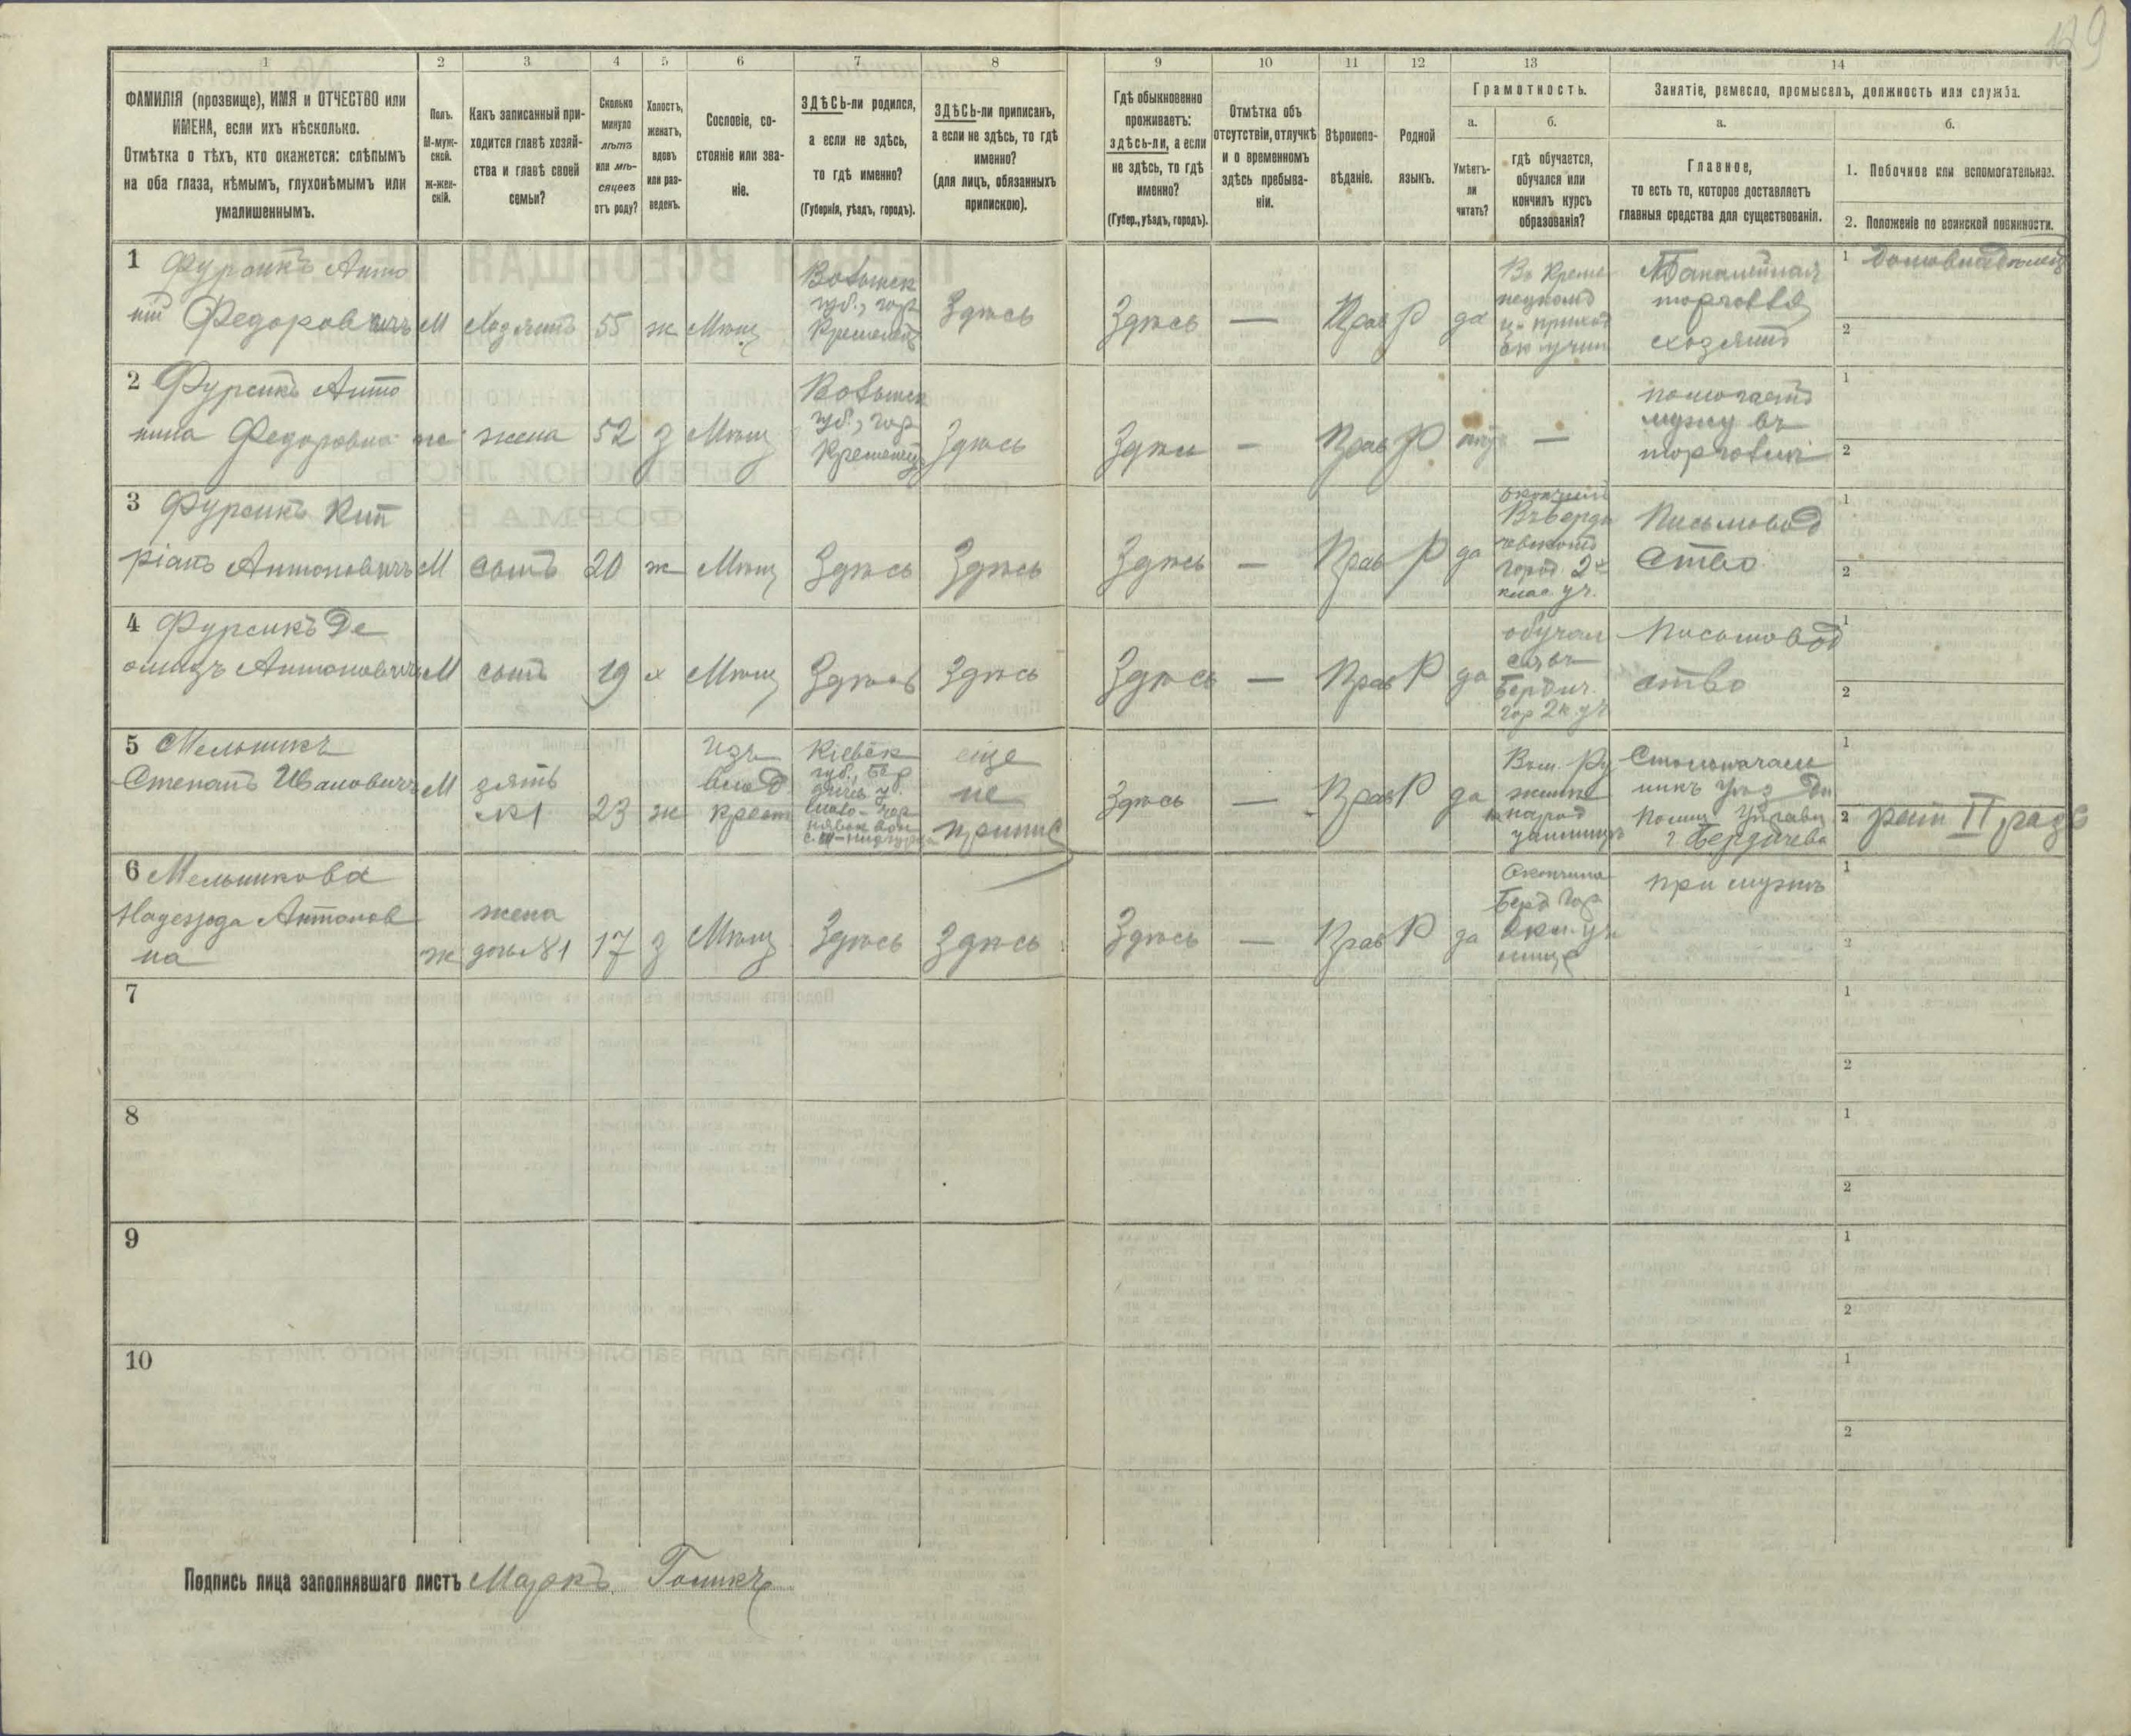 129
1 2 3 4 5 6 7 8 9 10 11 12 13 14
ФАМИЛІЯ (прозвище), ИМЯ и ОТЧЕСТВО или
ИМЕНА, если ихъ нѣсколько.
Отмѣтка о тѣхъ, кто окажется: слѣпымъ
на оба глаза, нѣмымъ, глухонѣмымъ или
умалишеннымъ.
Полъ.
М-муж-
ской.
ж-жен-
скій.
Какъ записанный при-
ходится главѣ хозяй-
ства и главѣ своей
семьи?
Сколько
минуло
лѣтъ
или мѣ-
сяцевъ
отъ роду?
Холостъ,
женатъ,
вдовъ
или раз-
веденъ.
Сословіе, со-
стояніе или зва-
ніе.
ЗДѢСЬ-ли родился,
а если не здѣсь,
то гдѣ именно?
(Губернія, уѣздъ, городъ).
ЗДѢСЬ-ли приписанъ,
а если не здѣсь, то гдѣ
именно?
(для лицъ, обязанныхъ
припискою).
Гдѣ обыкновенно
проживаетъ:
здѣсь-ли, а если
не здѣсь, то гдѣ
именно?
(Губер., уѣздъ, городъ).
Отмѣтка объ
отсутствіи, отлучкѣ
и о временномъ
здѣсь пребыва-
ніи.
Вѣроиспо-
вѣданіе.
Родной
языкъ.
Грамотность.
а.
Умѣетъ-
ли
читать?
б.
гдѣ обучается,
обучался или
кончилъ курсъ
образованія?
Занятіе, ремесло, промыселъ, должность или служба.
а.
Главное,
то есть то, которое доставляетъ
главныя средства для существованія.
б.
1. Побочное или вспомогательное.
2. Положеніе по воинской повинности.
1 Фурсикъ Анто
ній Федоровичъ
М
Хозяинъ
55
ж
Мѣщ
Волынск
губ., гор
Кременец
Здѣсь
Здѣсь
—
Прав
Р
да
торговля
1
2
2 Фурсикъ Анто
нина Федоровна
ж
жена
52
з
Мѣщ
Волынск
губ., гор
Кременец
Здѣсь
Здѣсь
—
Прав
Р
нѣт
—
помогаетъ
мужу въ
торговли
1
2
3 Фурсикъ Кип
ріанъ Антоновичъ
М
сынъ
20
ж
Мѣщ
Здѣсь
Здѣсь
Здѣсь
—
Прав
Р
да
окончилъ
Въ Берди
чевскомъ
город. 2х
клас уч.
Письмовод
ство
1
2
4 Фурсикъ Де
Антоновичъ
М
сынъ
19
х
Мѣщ
Здѣсь
Здѣсь
Здѣсь
—
Прав
Р
да
обучал
ся въ
Бердич.
гор 2к уч
Письмовод
ство
1
2
5 Мельникъ
Степанъ Ивановичъ
М
зять
№1
23
ж
изъ
крест
Кіевск
губ., Бер
еще
не
припис
Здѣсь
—
Прав
Р
да
народ
училищѣ
Столоначаль
никъ
Полиц Управл
г Бердичева
1
2 рат II разр
6 Мельникова
Надежда Антонов
на
ж
жена
дочь №1
17
з
Мѣщ
Здѣсь
Здѣсь
Здѣсь
—
Прав
Р
да
Окончила
Берд Гор
2 кл. учи
лище
при мужѣ
1
2
7
1
2
8
1
2
9
1
2
10
1
2
Подпись лица заполнявшаго листъ Маркъ